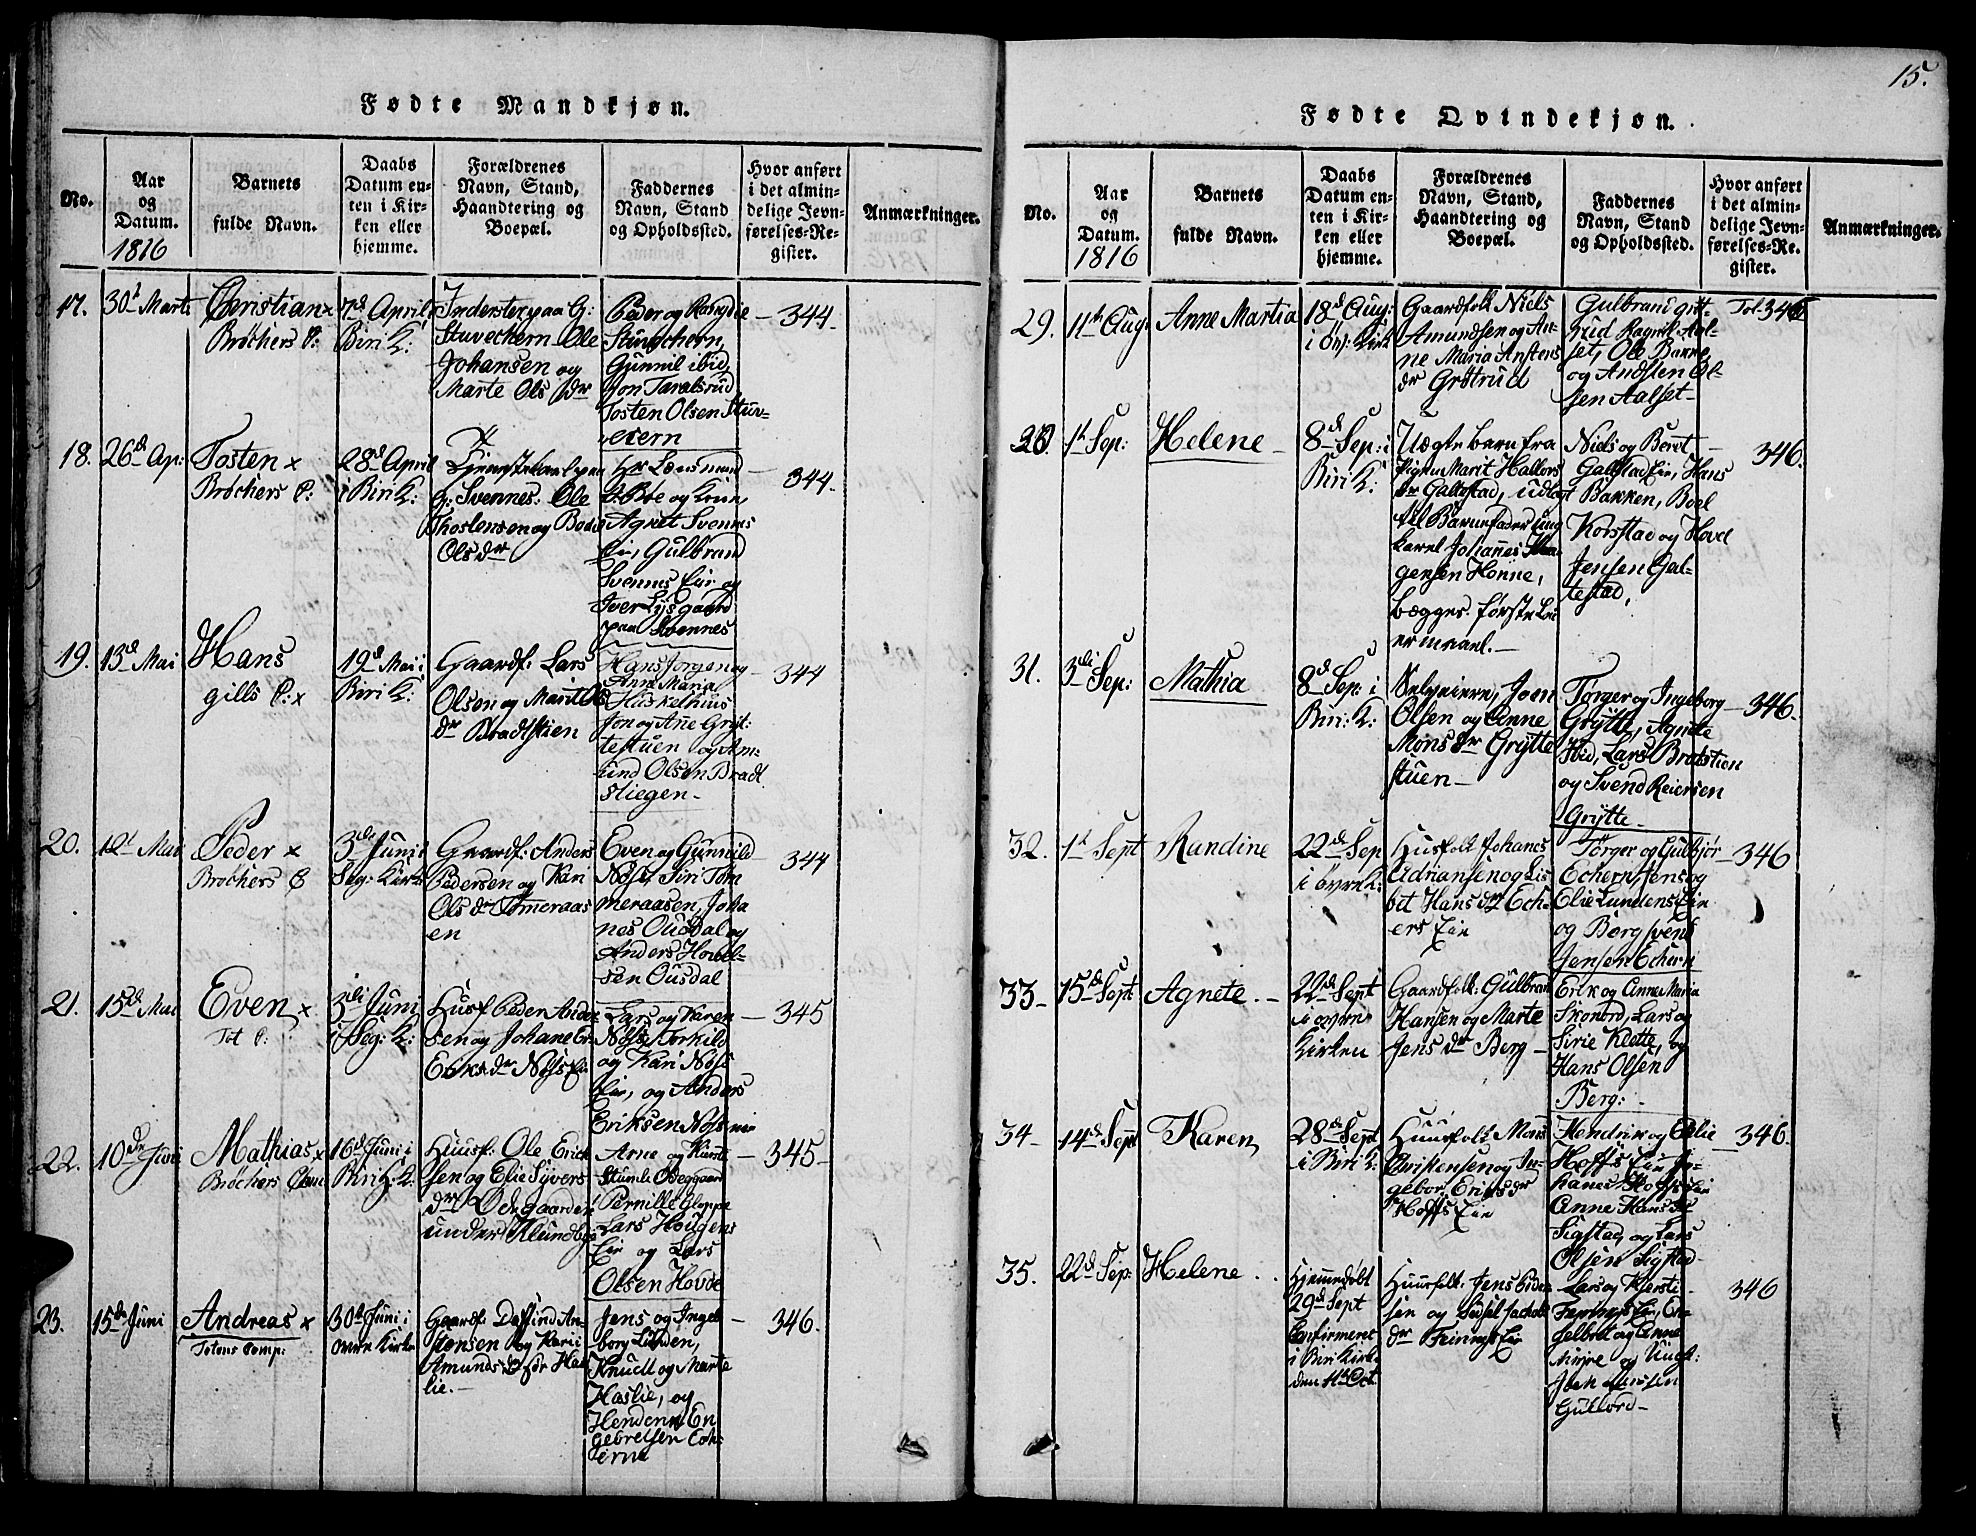 15.
Fødte Mandkjøn.
No.
Aar
og
Datum.
1816
Barnets
fulde Navn.
Daabs
Datum en-
ten i Kir-
ken eller
hjemme.
Forældrenes
Navn, Stand,
Haandtering og
Boepæl.
Faddernes
Navn, Stand
og Opholdssted.
Hvor anført
i det almin-
delige Jevn-
førelses-Re-
gister.
Anmærkninger.
17.
30t Marts
Christian x
Brøchers P:
7d April i
Biri K:
Inderster paa G:
Stuvechern Ole
Johansen og
Marte Ols dr
Peder og
Gunnil ibid,
Tosten Olsen Stuv-
344.
18.
26d Ap:
Tosten x
Brøchers P:
28d April
i Biri K:
G: Svennes: Ole
Thostensen og
Ols dr
Hr Lensmand
Agnet Svennes
Eie, Gulbrand
Svennes Eie og
Iver Lysgaard
paa Svennes
344.
19.
13d Mai
Hans
gills P: x
19d Mai i
Biri K:
Gaardf: Lars
Olsen og Marit Ols
dr Bradtstien
Hans Jørgen og
Anne Maria
Huskelhuus
Jon og Ane Gryt-
testuen og Am-
und Olsen Bradt
stiegen -
344
20.
12t Mai
Peder x
Brøchers P
3di Juni i
Seg: Kirke
Gaardf: Anders
Pedersen og Kari
Ols dr Tømeraas
en
Even og Gunnild
Nøss, Siri Tøm
meraasen, Joha
nes Ousdal og
Anders Hovel-
sen Ousdal
344
21.
15d Mai
Even x
Tot P:
3di Juni
i Seg: K:
Husf Peder Ander
sen og Johane Er
Eriks dr Nøss Eie
Lars og Karen
Nøss, Torkild
og Kari Nøss
Eie, og Anders
Eriksen Nøss eie
345
22.
10de Juni
Mathias x
Brøchers
16d Juni i
Biri H: K:
Huusf: Ole Erick
sen og Elie Syvers
dr Odegaarden
under Klundby
Arne og
Pernille Gloppe
Lars Hougens
Eie og Lars
Olsen Hovde
345
23.
15de Juni
Andreas x
Totens Comp:
30te Juni i
øvre Kirke
Gaardf:
stensen og Karii
Amunds dr
lie. -
Jens og Ingeb
borg Linden,
Knudt og Marte
Haslie, og
gebretsen
346.
Fødte Qvindekjøn.
No.
Aar
og
Datum.
1816
Barnets
fulde Navn.
Daabs
Datum en-
ten i Kir-
ken eller
hjemme.
Forældrenes
Navn, Stand,
Haandtering og
Boepæl.
Faddernes
Navn, Stand
og Opholdssted.
Hvor anført
i det almin-
delige Jevn-
førelses-Re-
gister.
Anmærkninger.
29.
11th Aug:
Anne Martia
18d Aug:
i Øv: Kirk
Gaardfolk Niels
Amundsen og An-
ne Maria Anstens
dr Grøtrud
Gulbrand
set, Ole Bakke
og Andsten Ol-
sen Aalset -
Tol. 346
30
1t Sep:
Helene -
8d Sep: i
Biri K:
Uægte barn fra
Pigen Marit Hallors
dr Galtestad, udlagt
til Barnefader ung
karl Johannes
gensen Hønne,
begges første Lei
ermaal. -
Niels og Beret
Galtstad Eie, Hans
Bakken, Boel
Korsstad og Hovel
Jensen Gal-
testad,
346.
31.
3di Sep:
Mathia
8d Sep: i
Biri K:
Selveiere, Joen
Olsen og Anne
Mons dr Grytte
stuen -
Tørger og Ingeborg
Grytte, Agnete
ibid, Lars Bratstien
og Svend Reiersen
Grytte -
346.
32.
1t Sept
Randine
22d Sep
i øvre K:
Husfolk Johanes
Adriansen og Lis-
bet Hans dr Ech-
ers Eie
Tørger og Gulbjør
Echern, Jens og
Elie Lundens Eie
og Borg svend
Jensen Echern
346
33 -
15d Sept
Agnete. -
22d Sept
i øvre
Kirken
Gaardfolk: Gulbran
Hansen og Marte
Jens dr Berg -
Erik og Anne Maria
Skonord, Lars og
Sirie Klette, og
Hans Olsen
Berg: -
34 -
14d Sept
Karen
28d Sept
i Biri K:
Huusfolk Mons
Christensen og In-
gebor Eriks dr
Hoffs Eie
Hendrik og Edlie
Hoffs Eie Jo-
hanes Hoffs eie
Anne Hans dr
Sigstad, og Lars
Olsen Sigstad -
346.
35.
22d Sep:
Helene. .
Hjemmedøbt
29d Sept
Confirmert
i Biri Kirke
den 11te Oct
Huusfolk: Jens Peder
sen og Sidsel Jacobs
dr Feirings Eie
Lars og Kjersti
Feirings Eie, En-
gelbret og Anne
og Ungk:
Gullord -
346